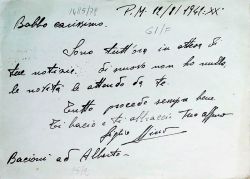 P.M. 12/8/1941=XX=
Babbo carissimo.
Sono tutt'ora in attesa di
tue notizie. di nuovo non ho nulla,
le novità le attendo da te.
Tutto procede sempre bene
Ti bacio e ti abbraccio tuo aff.mo
figlio
Bacioni ad Alberto =